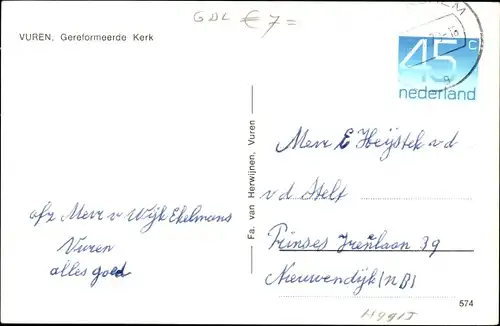 GDL € 7=
VUREN, Gereformeerde Kerk
45 c
nederland
Fa. van Herwijnen, Vuren
Mevr E Heijstek v d
v d Stelt
Prinses Irenlaan 39
Nieuwendijk (NB)
afz Mevr v Wijk Ekelmans
Vuren
alles goed
574